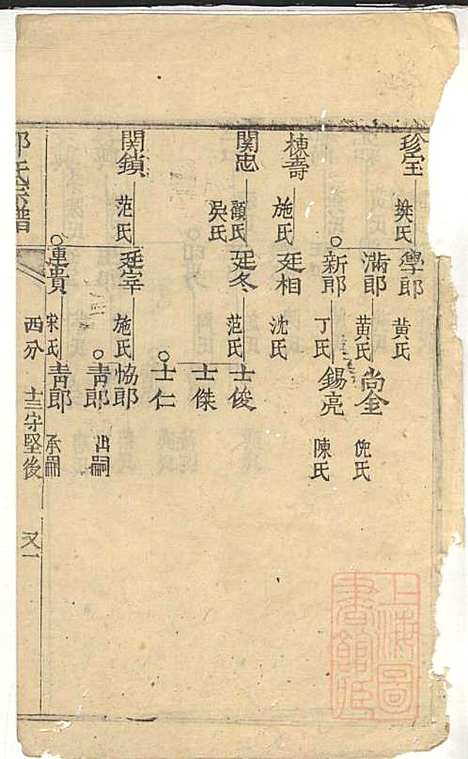 珍宝 樊氏 學郎 黄氏
滿郎 黄氏 尚金 倪氏
新郎 丁氏 錫亮 陳氏
棟壽 施氏 廷相 沈氏
関忠 顔氏 吳氏 廷冬 范氏 士俊
士傑
士仁
関鎖 范氏 廷宰 施氏 協郎
青郎 出嗣
重貴 宋氏 青郎 承嗣
氏宗譜 西分 士三守堅後 又一
上海圖書館藏